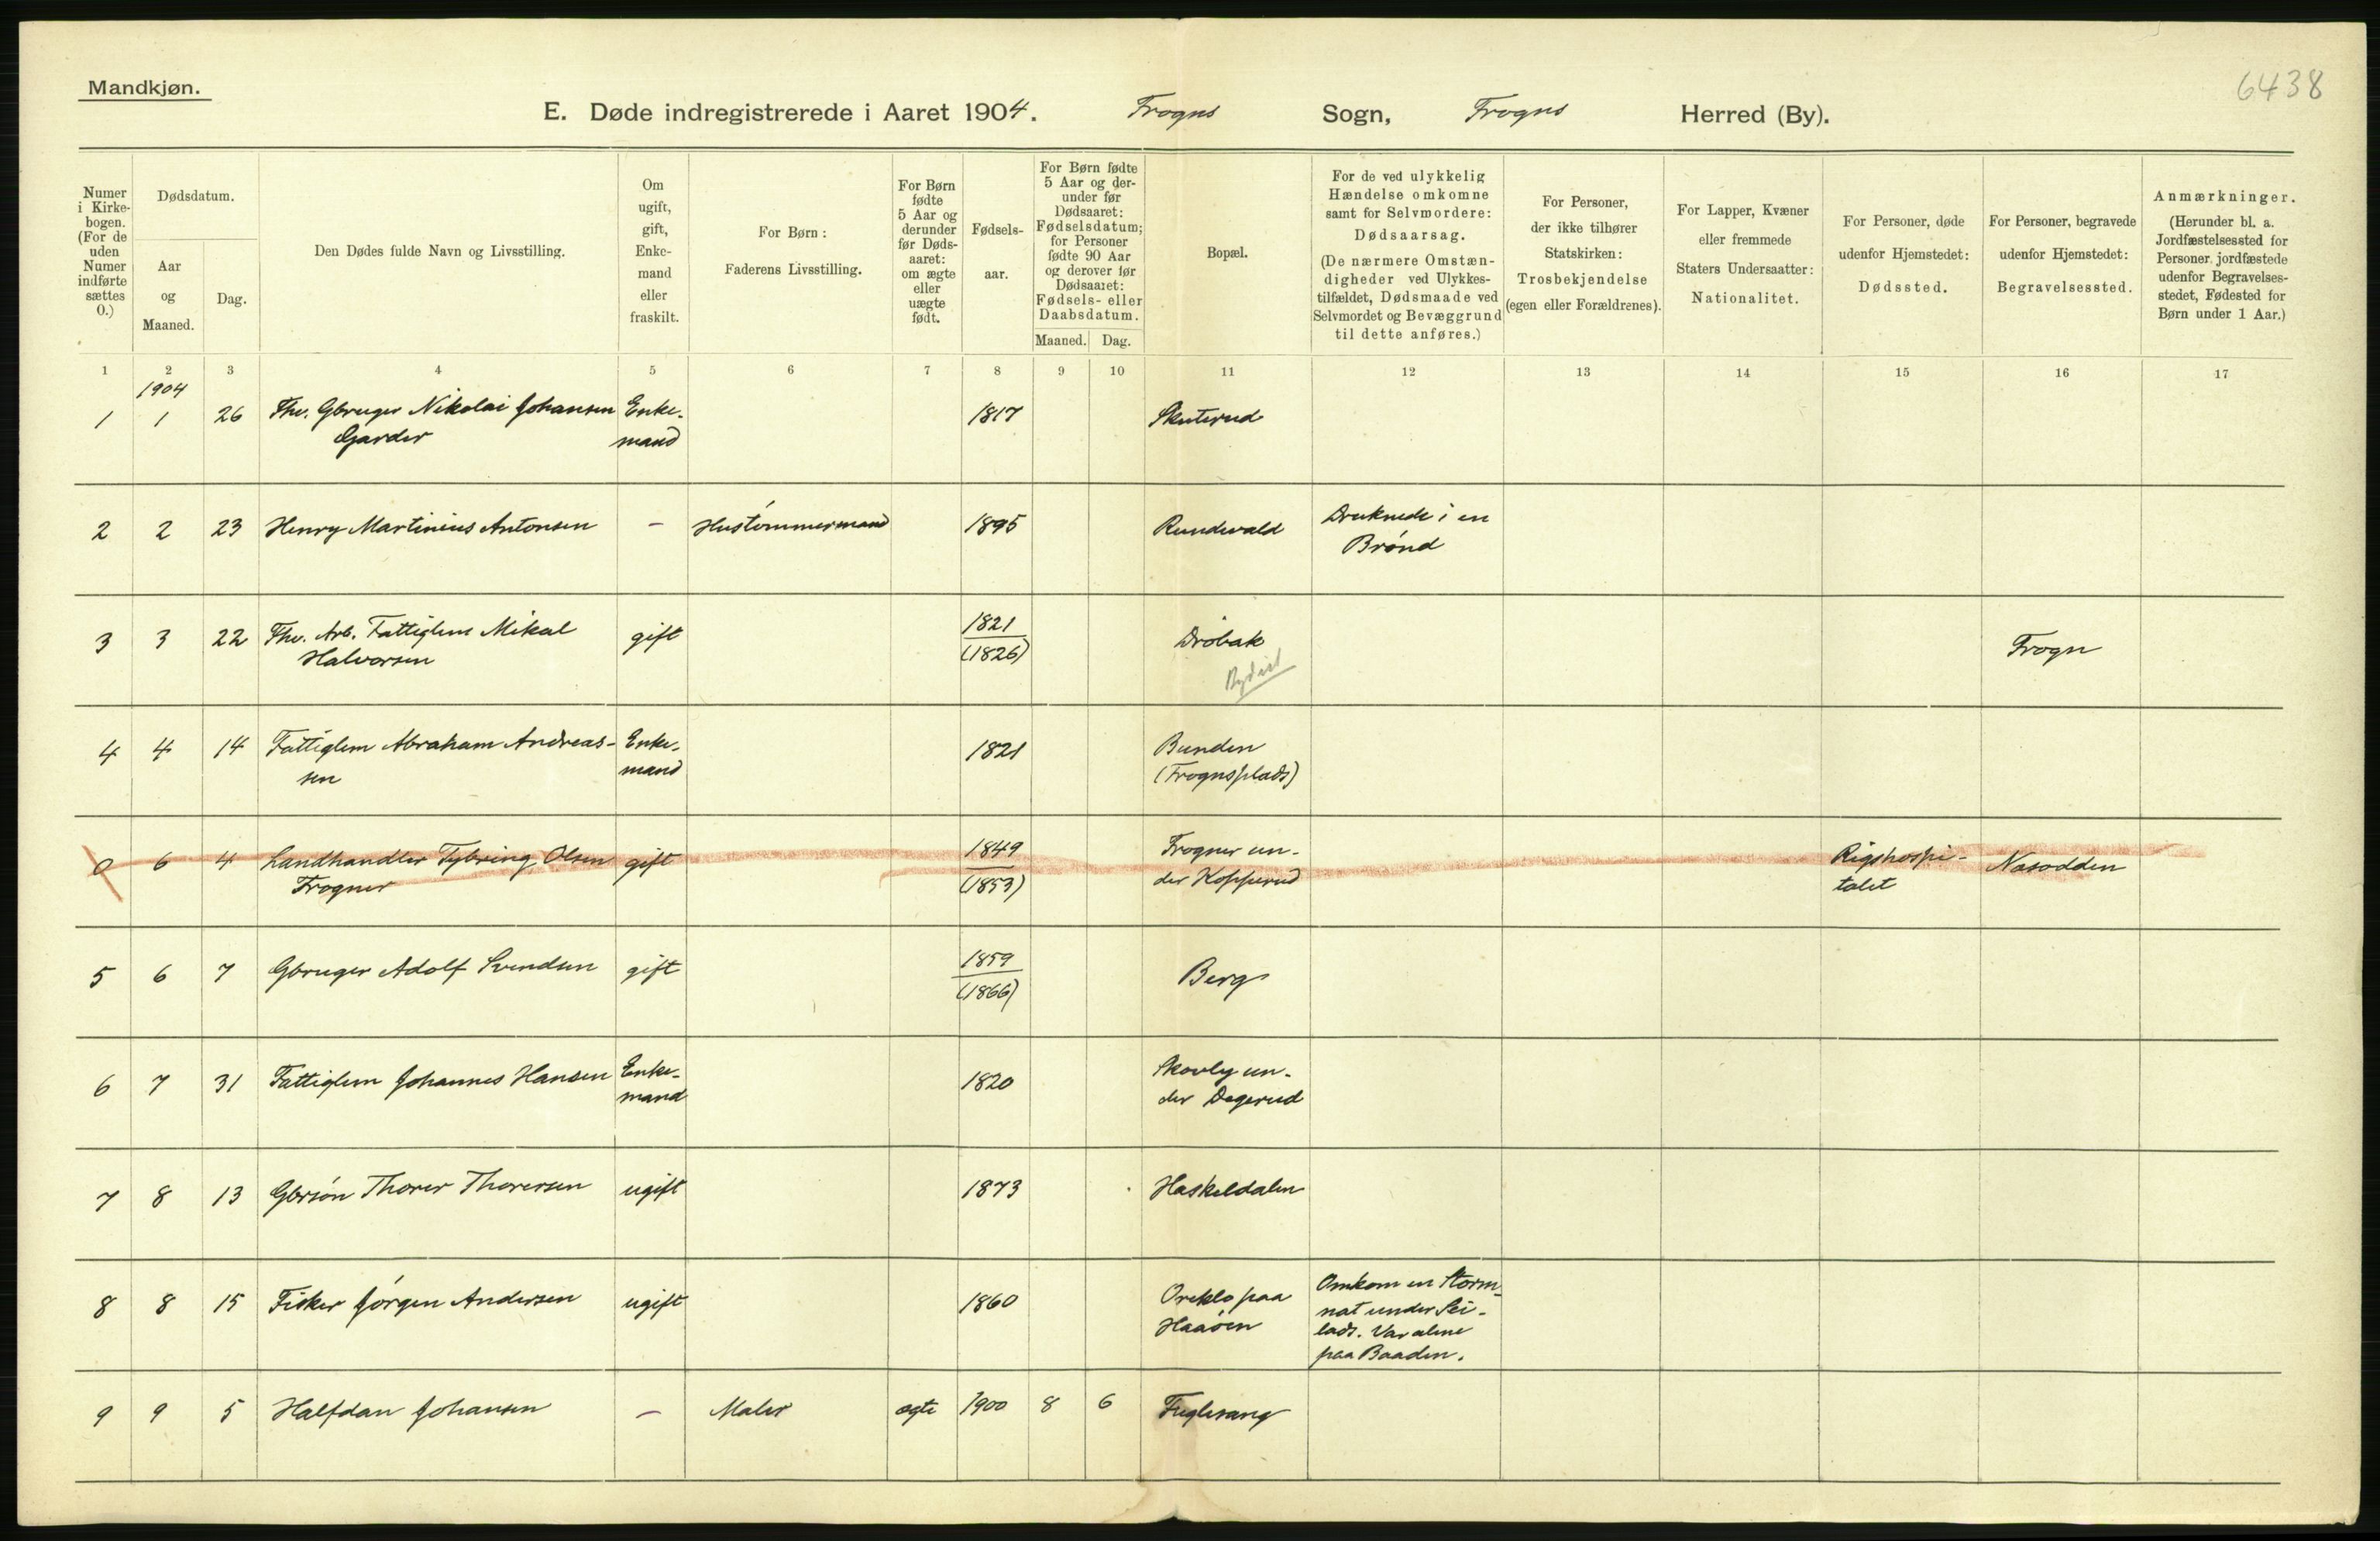 Mandkjøn.
6438
E. Døde indregistrerede i Aaret 1904. Frogns Sogn, Frogns Herred (By).
Numer i Kirke-bogen. (For de uden Numer indførte sættes 0.)
Dødsdatum.
Aar og Maaned.
Dag.
Den Dødes fulde Navn og Livsstilling.
Om ugift, gift, Enke-mand eller fraskilt.
For Børn: Faderens Livsstilling.
For Børn fødte 5 Aar og derunder før Døds-aaret: om ægte eller uægte født.
Fødsels-aar.
For Børn fødte 5 Aar og der-under før Dødsaaret: Fødselsdatum; for Personer fødte 90 Aar og derover før Dødsaaret: Fødsels- eller Daabsdatum.
Maaned. Dag.
Bopæl.
For de ved ulykkelig Hændelse omkomne samt for Selvmordere: Dødsaarsag. (De nærmere Omstæn-digheder ved Ulykkes-tilfældet, Dødsmaade ved Selvmordet og Bevæggrund til dette anføres.)
For Personer, der ikke tilhører Statskirken: Trosbekjendelse (egen eller Forældrenes).
For Lapper, Kvæner eller fremmede Staters Undersaatter: Nationalitet.
For Personer, døde udenfor Hjemstedet: Dødssted.
For Personer, begravede udenfor Hjemstedet: Begravelsessted.
Anmærkninger. (Herunder bl. a. Jordfæstelsessted for Personer jordfæstede udenfor Begravelses-stedet, Fødested for Børn under 1 Aar.)
1 2 3 4 5 6 7 8 9 10 11 12 13 14 15 16 17
1904
1 1 26 Fhv. Gbruger Nikolai Johansen Enke- 1817 Skuterud
Garder mand
2 2 23 Henry Martinius Antonsen – Hustømmermand 1895 Rundvald Druknede i en
Brønd
3 3 22 Fhv. Arb. Fattiglem Mikal gift 1821 Drøbak Frogn
Halvorsen (1826)
4 4 14 Fattiglem Abraham Andreas- Enke- 1821 Bunden
sen mand (Frognsplads)
0 6 4 Landhandler Tybring Olsen gift 1849 Frogner un- Rigshospi- Nesodden
Frogner (1853) der Kopperud talet
5 6 7 Gbruger Adolf Svendsen gift 1859 Berg
(1866)
6 7 31 Fattiglem Johannes Hansen Enke- 1820 Skovly un-
mand der Degerud
7 8 13 Gbrsøn Thorer Thorersen ugift 1873 Haskeldalen
8 8 15 Fisker Jørgen Andersen ugift 1860 Oreklo paa Omkom en Storm-
Haaøen nat under Sei-
lads. Var alene
paa Baaden.
9 9 5 Halfdan Johansen – Maler ægte 1900 8 6 Fuglesang